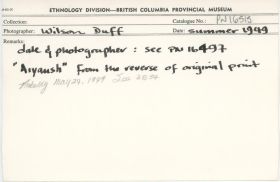 ETHNOLOGY DIVISION—BRITISH COLUMBIA PROVINCIAL MUSEUM
Collection: Catalogue No.: PN 16515
Photographer: Wilson Duff Date: summer 1949
Remarks:
date & photographer : see PN 16497
"Aiyansh" from the reverse of original print
Probably May 24, 1949